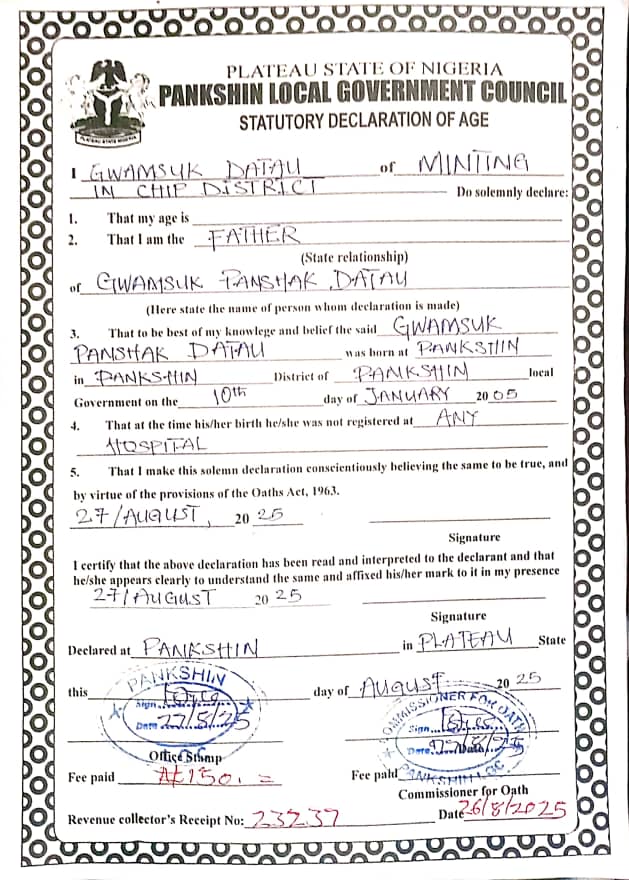 PLATEAU STATE OF NIGERIA
PANKSHIN LOCAL GOVERNMENT COUNCIL
STATUTORY DECLARATION OF AGE
PLATEAU STATE NIGERIA
I GWAMSUK DATAU of MINTING
IN CHIP DISTRICT Do solemnly declare:
1. That my age is
2. That I am the FATHER
(State relationship)
of GWAMSUK PANSHAK DATAU
(Here state the name of person whom declaration is made)
3. That to be best of my knowlege and belief the said GWAMSUK
PANSHAK DATAU was born at PANKSHIN
in PANKSHIN District of PANKSHIN local
Government on the 10th day of JANUARY 2005
4. That at the time his/her birth he/she was not registered at ANY
HOSPITAL
5. That I make this solemn declaration conscientiously believing the same to be true, and
by virtue of the provisions of the Oaths Act, 1963.
27/AUGUST, 2025
Signature
I certify that the above declaration has been read and interpreted to the declarant and that
he/she appears clearly to understand the same and affixed his/her mark to it in my presence
27/AUGUST 2025
Signature
Declared at PANKSHIN in PLATEAU State
this day of AUGUST 2025
PANKSHIN
Sign
Date 27/8/25
COMMISSIONER FOR OATH
Sign
Date
PANKSHIN LGC
Office Stamp
Fee paid ₦150. = Fee paid
Commissioner for Oath
Revenue collector's Receipt No: 23237 Date 26/8/2025